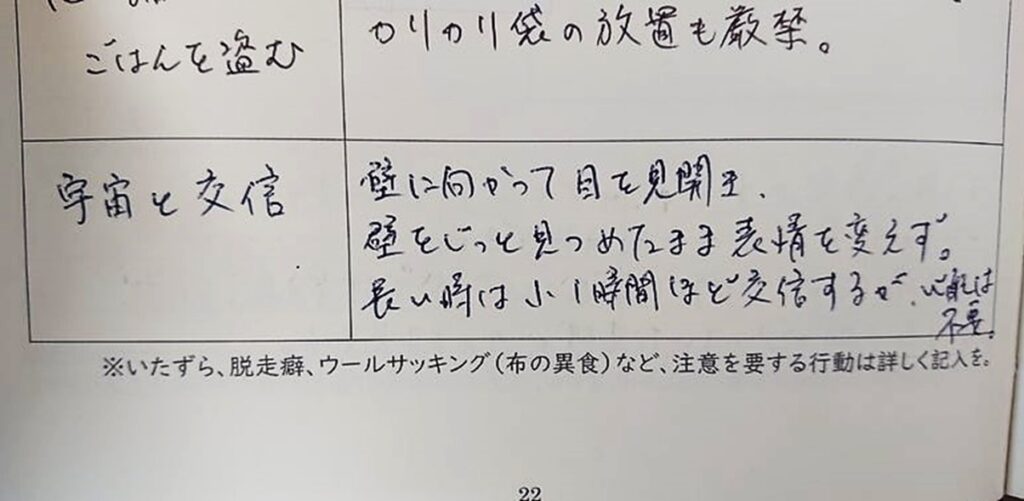 ごはんを盗む
カリカリ袋の放置も厳禁。
宇宙と交信
壁に向かって目を見開き、
壁をじっと見つめたまま表情を変えず。
長い時は小1時間ほど交信するが、心配は
不要。
※いたずら、脱走癖、ウールサッキング(布の異食)など、注意を要する行動は詳しく記入を。
22